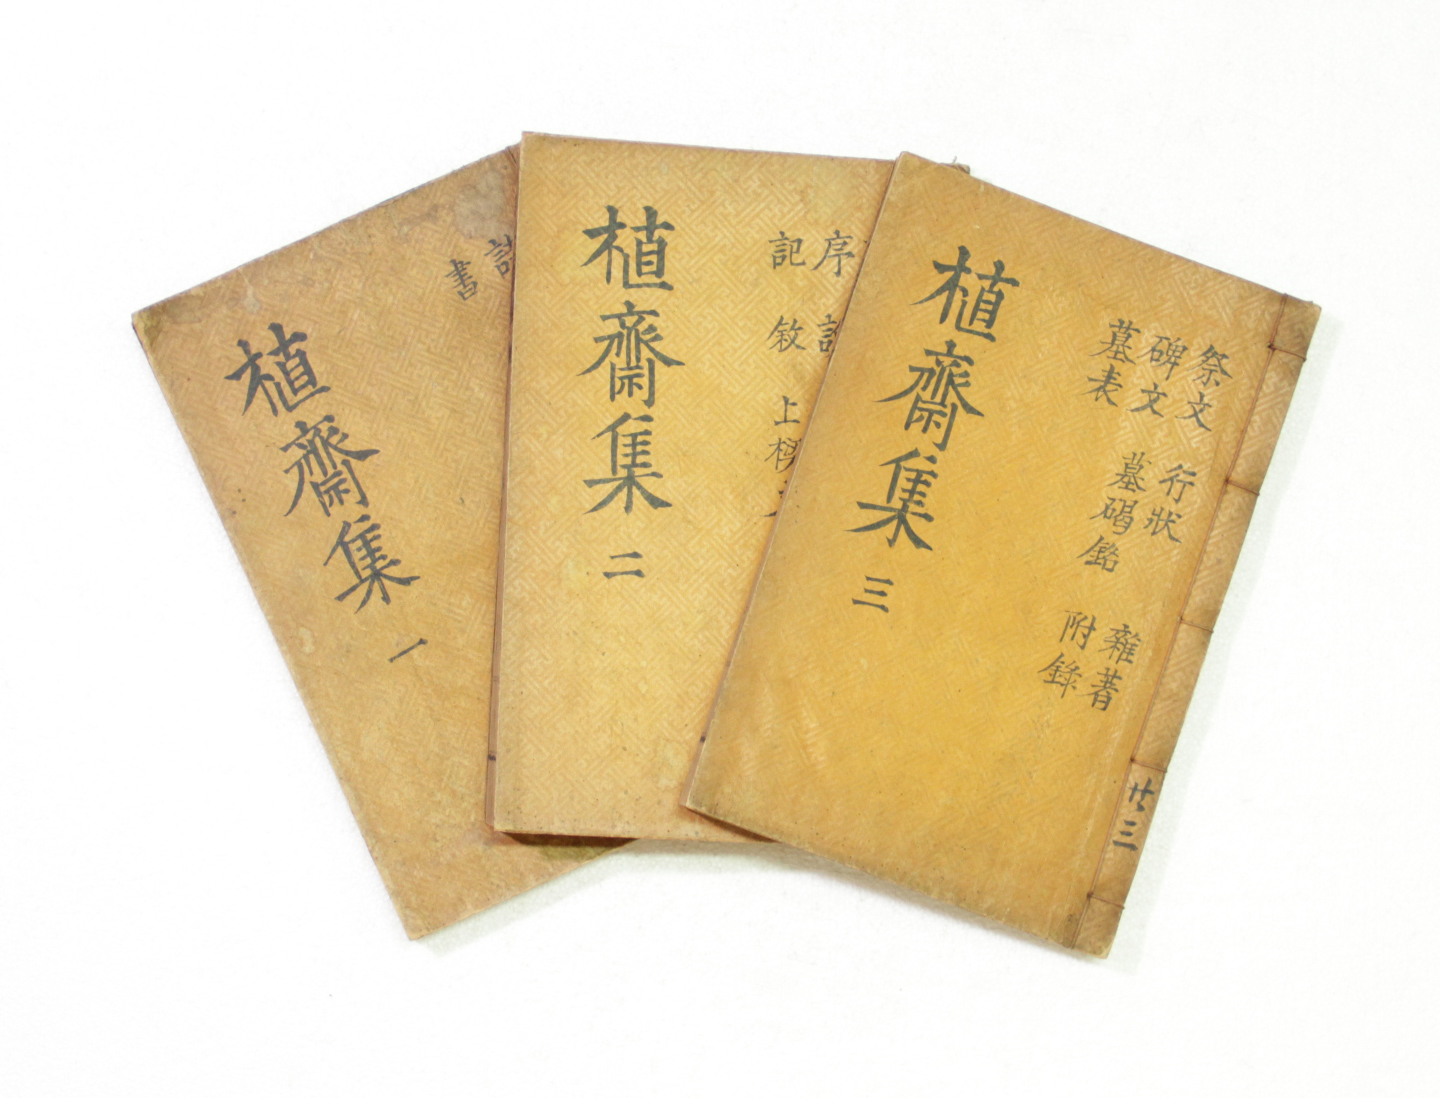 植齋集 一
書
植齋集 二
序
記 敍 上樑
植齋集 三
祭文 行狀 雜著
碑文 墓碣銘 附錄
墓表
共三